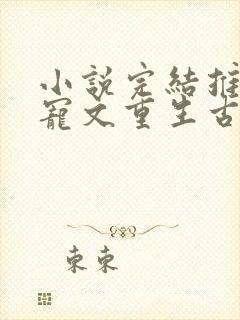 小說完結推
寵文重生古
東東